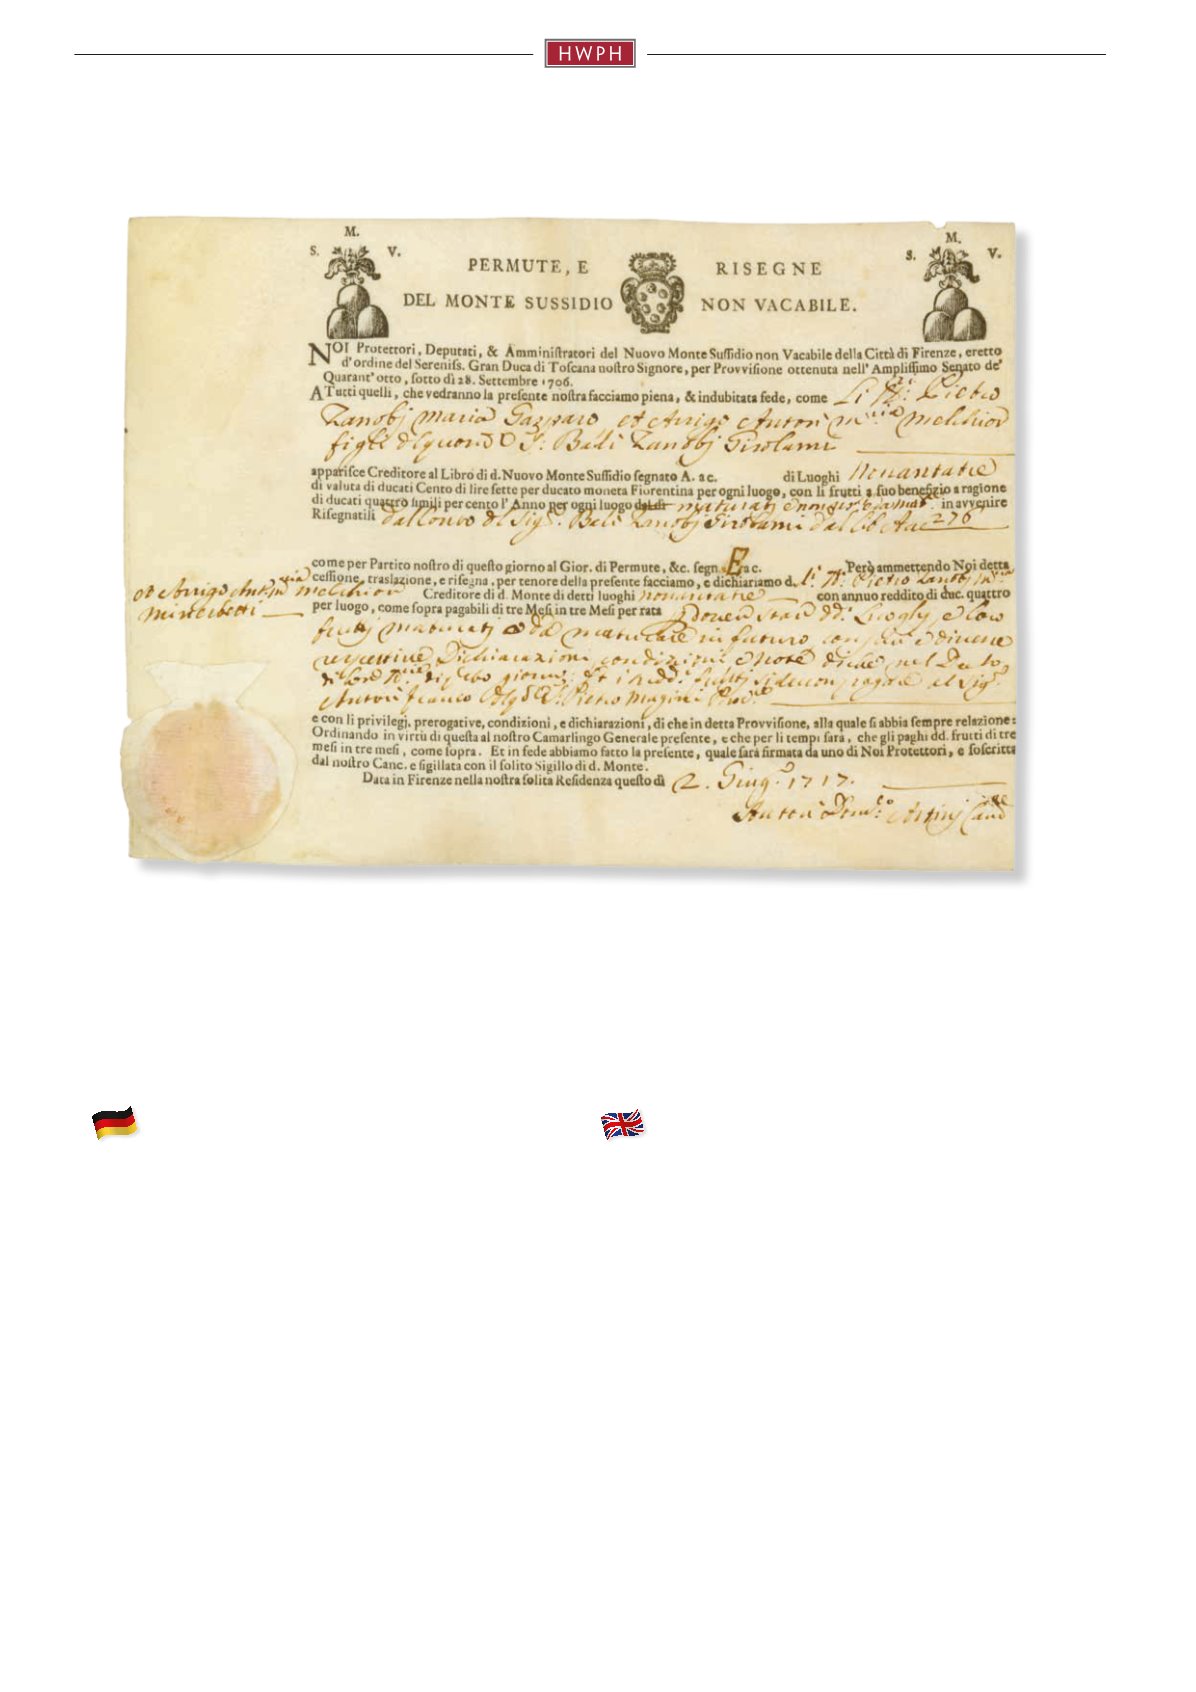 HWPH
M.
S. V.
M.
S. V.
PERMUTE, E RISEGNE
DEL MONTE SUSSIDIO NON VACABILE.
NOI Protettori, Deputati, & Amminiſtratori del Nuovo Monte Suſſidio non Vacabile della Città di Firenze, eretto
d'ordine del Sereniſs. Gran Duca di Toscana noſtro Signore, per Provviſione ottenuta nell' Ampliſſimo Senato de'
Quarant' otto, ſotto dì 28. Settembre 1706.
A Tutti quelli, che vedranno la preſente noſtra facciamo piena, & indubitata fede, come Li Pietro
Zanobj Maria Gasparo et Arrigo Anton Melchior
figli Bali Zanobj Girolami
appariſce Creditore al Libro di d. Nuovo Monte Suſſidio ſegnato A. a c. di Luoghi Nonantatre
di valuta di ducati Cento di lire ſette per ducato moneta Fiorentina per ogni luogo, con li frutti a ſuo benefizio a ragione
di ducati quattro ſimili per cento l' Anno per ogni luogo maturati in avvenire
Riſegnatili dal Conto Sig. Bali Zanobj Girolami dal 276
come per Partito noſtro di queſto giorno al Gior. di Permute, &c. ſegn. E a c. Però ammettendo Noi detta
ceſſione, traslazione, e riſegna, per tenore della preſente facciamo, e dichiariamo d. Pietro Zanobj
et Arrigo Melchior Creditore di d. Monte di detti luoghi nonantatre con annuo reddito di duc. quattro
per luogo, come ſopra pagabili di tre Meſi in tre Meſi per rata
frutti maturati maturare in futuro
respettive Dichiarazioni condizioni e note
giorni Sig.
Anton Franco Pietro Magini
e con li privilegj, prerogative, condizioni, e dichiarazioni, di che in detta Provviſione, alla quale ſi abbia ſempre relazione:
Ordinando in virtù di queſta al noſtro Camarlingo Generale preſente, e che per li tempi ſarà, che gli paghi dd. frutti di tre
meſi in tre meſi, come ſopra. Et in fede abbiamo fatto la preſente, quale ſarà firmata da uno di Noi Protettori, e ſoſcritta
dal noſtro Canc. e ſigillata con il ſolito Sigillo di d. Monte.
Data in Firenze nella noſtra ſolita Reſidenza queſto dì 2. Giug.o 1717.